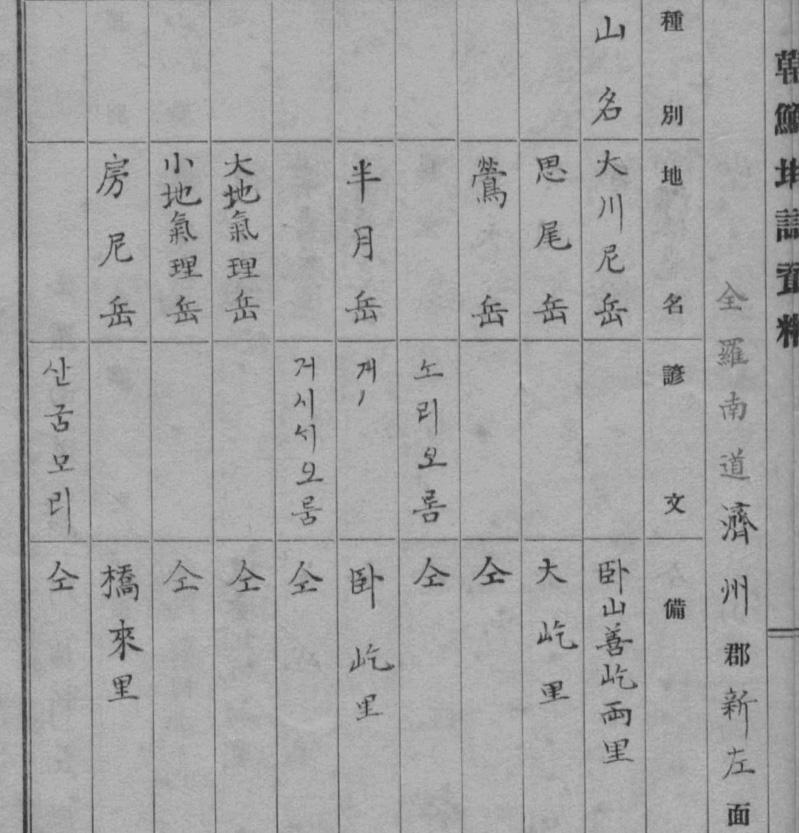 朝鮮地誌資料
全羅南道濟州郡新左面
種別 地名 諺文 備
山名 大川尼岳 卧山善屹両里
思尾岳 大屹里
鶯岳 仝
노리오롬 仝
半月岳 게ノ 卧屹里
거시서오룸 仝
大地氣理岳 仝
小地氣理岳 仝
房尼岳 橋來里
산굼모리 仝